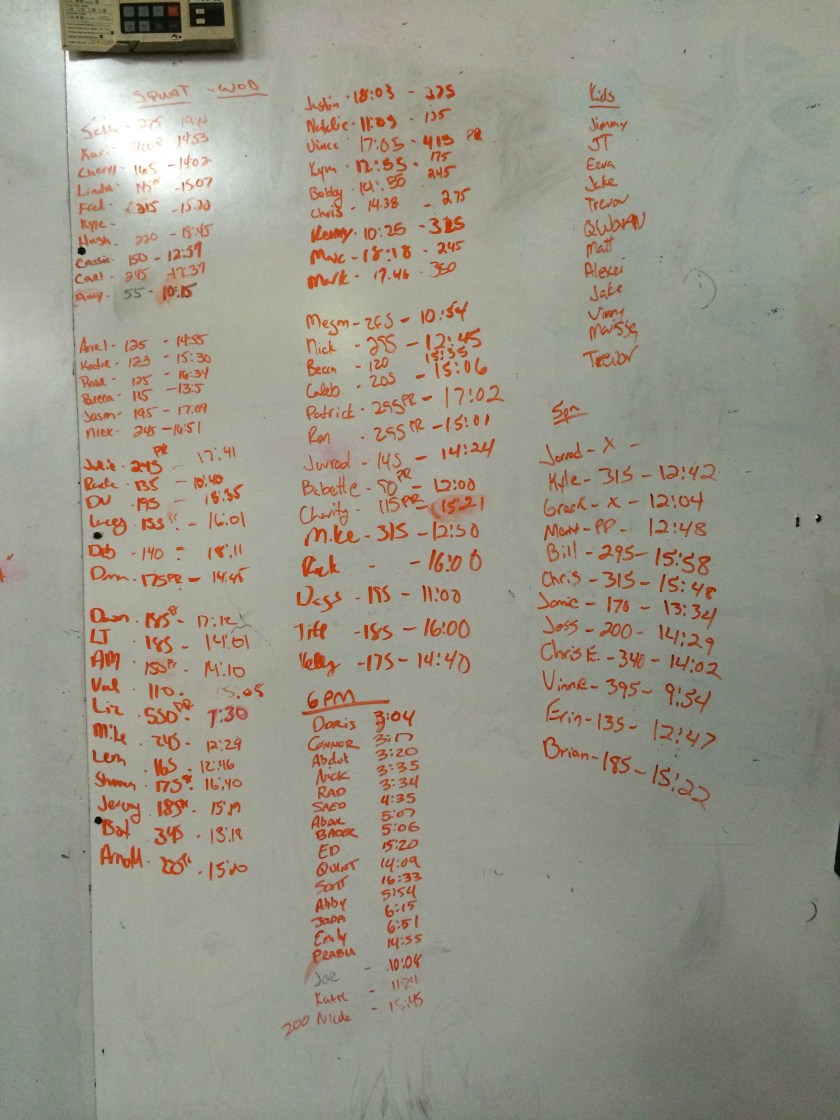 SQUAT - WOD
Seth - 275
Kari - 14:53
Cheryl - 165 - 14:02
Linda - 145 - 15:07
Fred - 215 - 15:20
Kyle -
Hugh - 220 - 18:45
Cassie - 150 - 12:59
Carl - 245 - 17:37
Amy - 55 - 10:15
Ariel - 125 - 14:55
Katie - 123 - 15:30
Rose - 125 - 16:34
Becca - 115 - 13:5
Jason - 195 - 17:09
Nick - 245 - 16:51
Julie - 245 PR - 17:41
135 - 10:40
DV - 195 - 15:35
Lucy - 155 PR - 16:01
Deb - 140 - 18:11
Dana - 175 PR - 14:45
Dawn - 185 PR - 17:12
LT - 185 - 14:01
AM - 150 PR - 14:10
Val - 110 - 15:05
Liz - 550 PR - 7:30
Mike - 245 - 12:29
Lem - 165 - 12:46
Shawn - 175 PR - 16:40
Jeremy - 185 PR - 15:19
Bat - 345 - 13:18
Arnold - 15:10
Justin - 18:03 - 325
Natalie - 11:09 - 135
Vince - 17:05 - 415 PR
Kym - 12:55 - 175
Bobby - 14:55 245
Chris - 14:38 - 275
Kenny - 10:25 - 325
Marc - 18:18 - 245
Mark - 17:46 - 350
Megan - 265 - 10:54
Nick - 255 - 12:45
Becca - 120 15:35
Caleb - 205 - 15:06
Patrick - 295 PR - 17:02
Ron - 255 PR - 15:01
Jarrod - 145 - 14:24
Babette - 90 PR - 12:00
Charity - 115 PR - 15:21
Mike - 315 - 12:50
Rick - - 16:00
Dags - 195 - 11:00
Tiff - 185 - 16:00
Kelly - 175 - 14:40
6 PM
Doris 3:04
CONNOR 3:17
Abdot 3:20
NICK 3:35
RAD 3:34
SAEO 4:35
Abar 5:07
BADER 5:06
ED 15:20
QUINT 14:09
SCOTT 16:33
Abby 5:54
JADA 6:15
Emily 6:51
PRABU 14:55
JOE - 10:08
Katie - 11:24
200 Nicole - 15:45
Kids
Jimmy
JT
Ezra
Jake
Trevor
QUORAN
Matt
Alexei
Jake
Vinny
Marissa
Trevor
5pm
Jarrod - X -
Kyle - 315 - 12:42
Grace - X - 12:04
Matt - PP - 12:48
Bill - 295 - 15:58
Chris - 315 - 15:48
Jamie - 170 - 13:34
Joss - 200 - 14:29
Chris E. - 340 - 14:02
Vinnie - 395 - 9:54
Erin - 135 - 12:47
Brian - 185 - 15:22